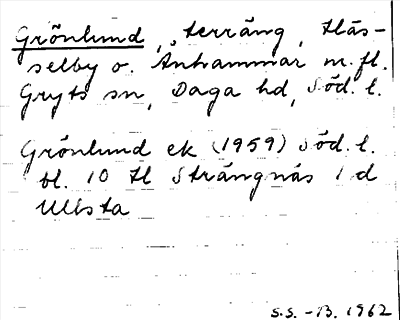 Grönlund, terräng, Häs-
selby o. Ånhammar m.fl.
Gryts sn, Daga hd, Söd. l.
Grönlund ek (1959) Söd. l.
bl. 10 H Strängnäs 1 d
Ullsta
S.S. -B. 1962